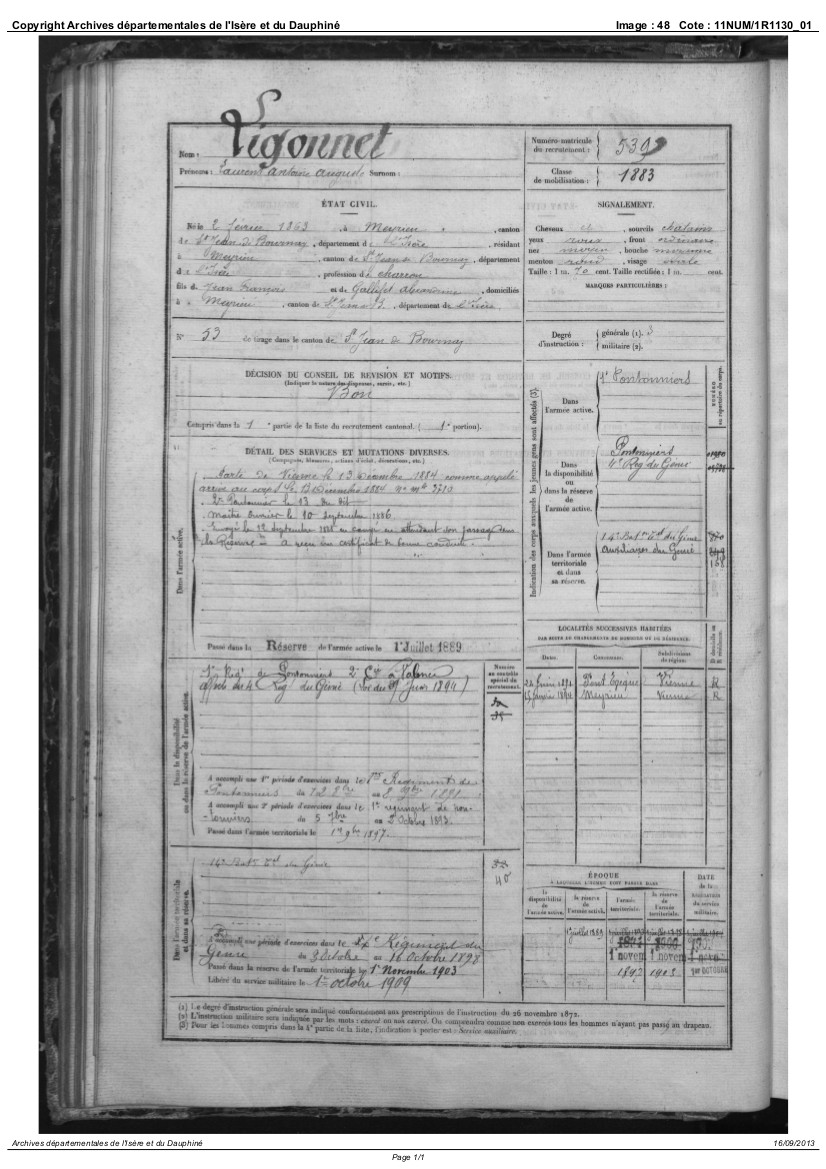 Copyright Archives départementales de l'Isère et du Dauphiné
Image : 48 Cote : 11NUM/1R1130_01
Nom : Vigonnet
Prénoms : Laurent Antoine Auguste Surnom :
Numéro-matricule du recrutement : 539
Classe de mobilisation : 1883
ÉTAT CIVIL.
Né le 2 février 1863, à Meyrieu, canton
de St Jean de Bournay, département de l'Isère, résidant
à Meyrieu, canton de St Jean de Bournay, département
de l'Isère, profession de charron
fils de Jean François et de Gallifet, domiciliés
à Meyrieu, canton de St Jean de B., département de l'Isère.
N° 53 de tirage dans le canton de St Jean de Bournay
SIGNALEMENT.
Cheveux, sourcils châtains
yeux roux, front ordinaire
nez moyen, bouche moyenne
menton rond, visage ovale
Taille : 1 m. 70 cent. Taille rectifiée : 1 m. cent.
MARQUES PARTICULIÈRES :
Degré d'instruction : générale (1). 3
militaire (2).
DÉCISION DU CONSEIL DE RÉVISION ET MOTIFS.
(Indiquer la nature des dispenses, sursis, etc.)
Bon
Compris dans la 1e partie de la liste du recrutement cantonal. ( 1e portion).
DÉTAIL DES SERVICES ET MUTATIONS DIVERSES.
(Campagnes, blessures, actions d'éclat, décorations, etc.)
Dans l'armée active.
le 13 Décembre 1884 comme appelé
arrivé au corps le 13 Décembre 1884 n° mle 3310
2e Pontonnier le 13 du dit
Maître ouvrier le 10 Septembre 1886
Envoyé le 12 Septembre en congé en attendant son passage dans
la Réserve a reçu un certificat de bonne conduite.
Passé dans la Réserve de l'armée active le 1er Juillet 1889
Indication des corps auxquels les jeunes gens sont affectés (3).
Dans l'armée active.
Pontonniers
NUMÉRO au répertoire du corps.
Dans la disponibilité ou dans la réserve de l'armée active.
Pontonniers
4e Rég du Génie
Dans l'armée territoriale et dans sa réserve.
14e Batn Tal du Génie
Auxiliaires du Génie
158
LOCALITÉS SUCCESSIVES HABITÉES
PAR SUITE DE CHANGEMENTS DE DOMICILE OU DE RÉSIDENCE.
Dates. Communes. Subdivision de région. D domicile ou R résidence.
Pont Evêque Vienne R
1894 Meyrieu Vienne R
Dans la disponibilité ou dans la réserve de l'armée active.
1er Régt de Pontonniers 2e Cie à Valence
affecté au 4e Régt du Génie (1894)
Numéro au contrôle spécial du recrutement.
A accompli une 1re période d'exercices dans le 1er Régiment de
Pontonniers du 12 8bre au 8 9bre 1891
A accompli une 2e période d'exercices dans le 1er régiment de Pon-
-tonniers du 5 7bre au 2 Octobre 1893.
Passé dans l'armée territoriale le 1er 9bre 1897.
Dans l'armée territoriale et dans sa réserve.
14e Batn Tal du Génie
40
A accompli une période d'exercices dans le 4e Régiment du
Génie du 3 Octobre au 16 Octobre 1898
Passé dans la réserve de l'armée territoriale le 1er Novembre 1903
Libéré du service militaire le 1er octobre 1909
ÉPOQUE
À LAQUELLE L'HOMME DOIT PASSER DANS
la disponibilité de l'armée active. la réserve de l'armée active. l'armée territoriale. la réserve de l'armée territoriale.
DATE de la libération du service militaire.
1 juillet 1889
1 novem 1 novem
1897 1903 1er OCTOBRE
(1) Le degré d'instruction générale sera indiqué conformément aux prescriptions de l'instruction du 26 novembre 1872.
(2) L'instruction militaire sera indiquée par les mots : exercé ou non exercé. On comprendra comme non exercés tous les hommes n'ayant pas passé au drapeau.
(3) Pour les hommes compris dans la 4e partie de la liste, l'indication à porter est : Service auxiliaire.
Archives départementales de l'Isère et du Dauphiné
16/09/2013
Page 1/1